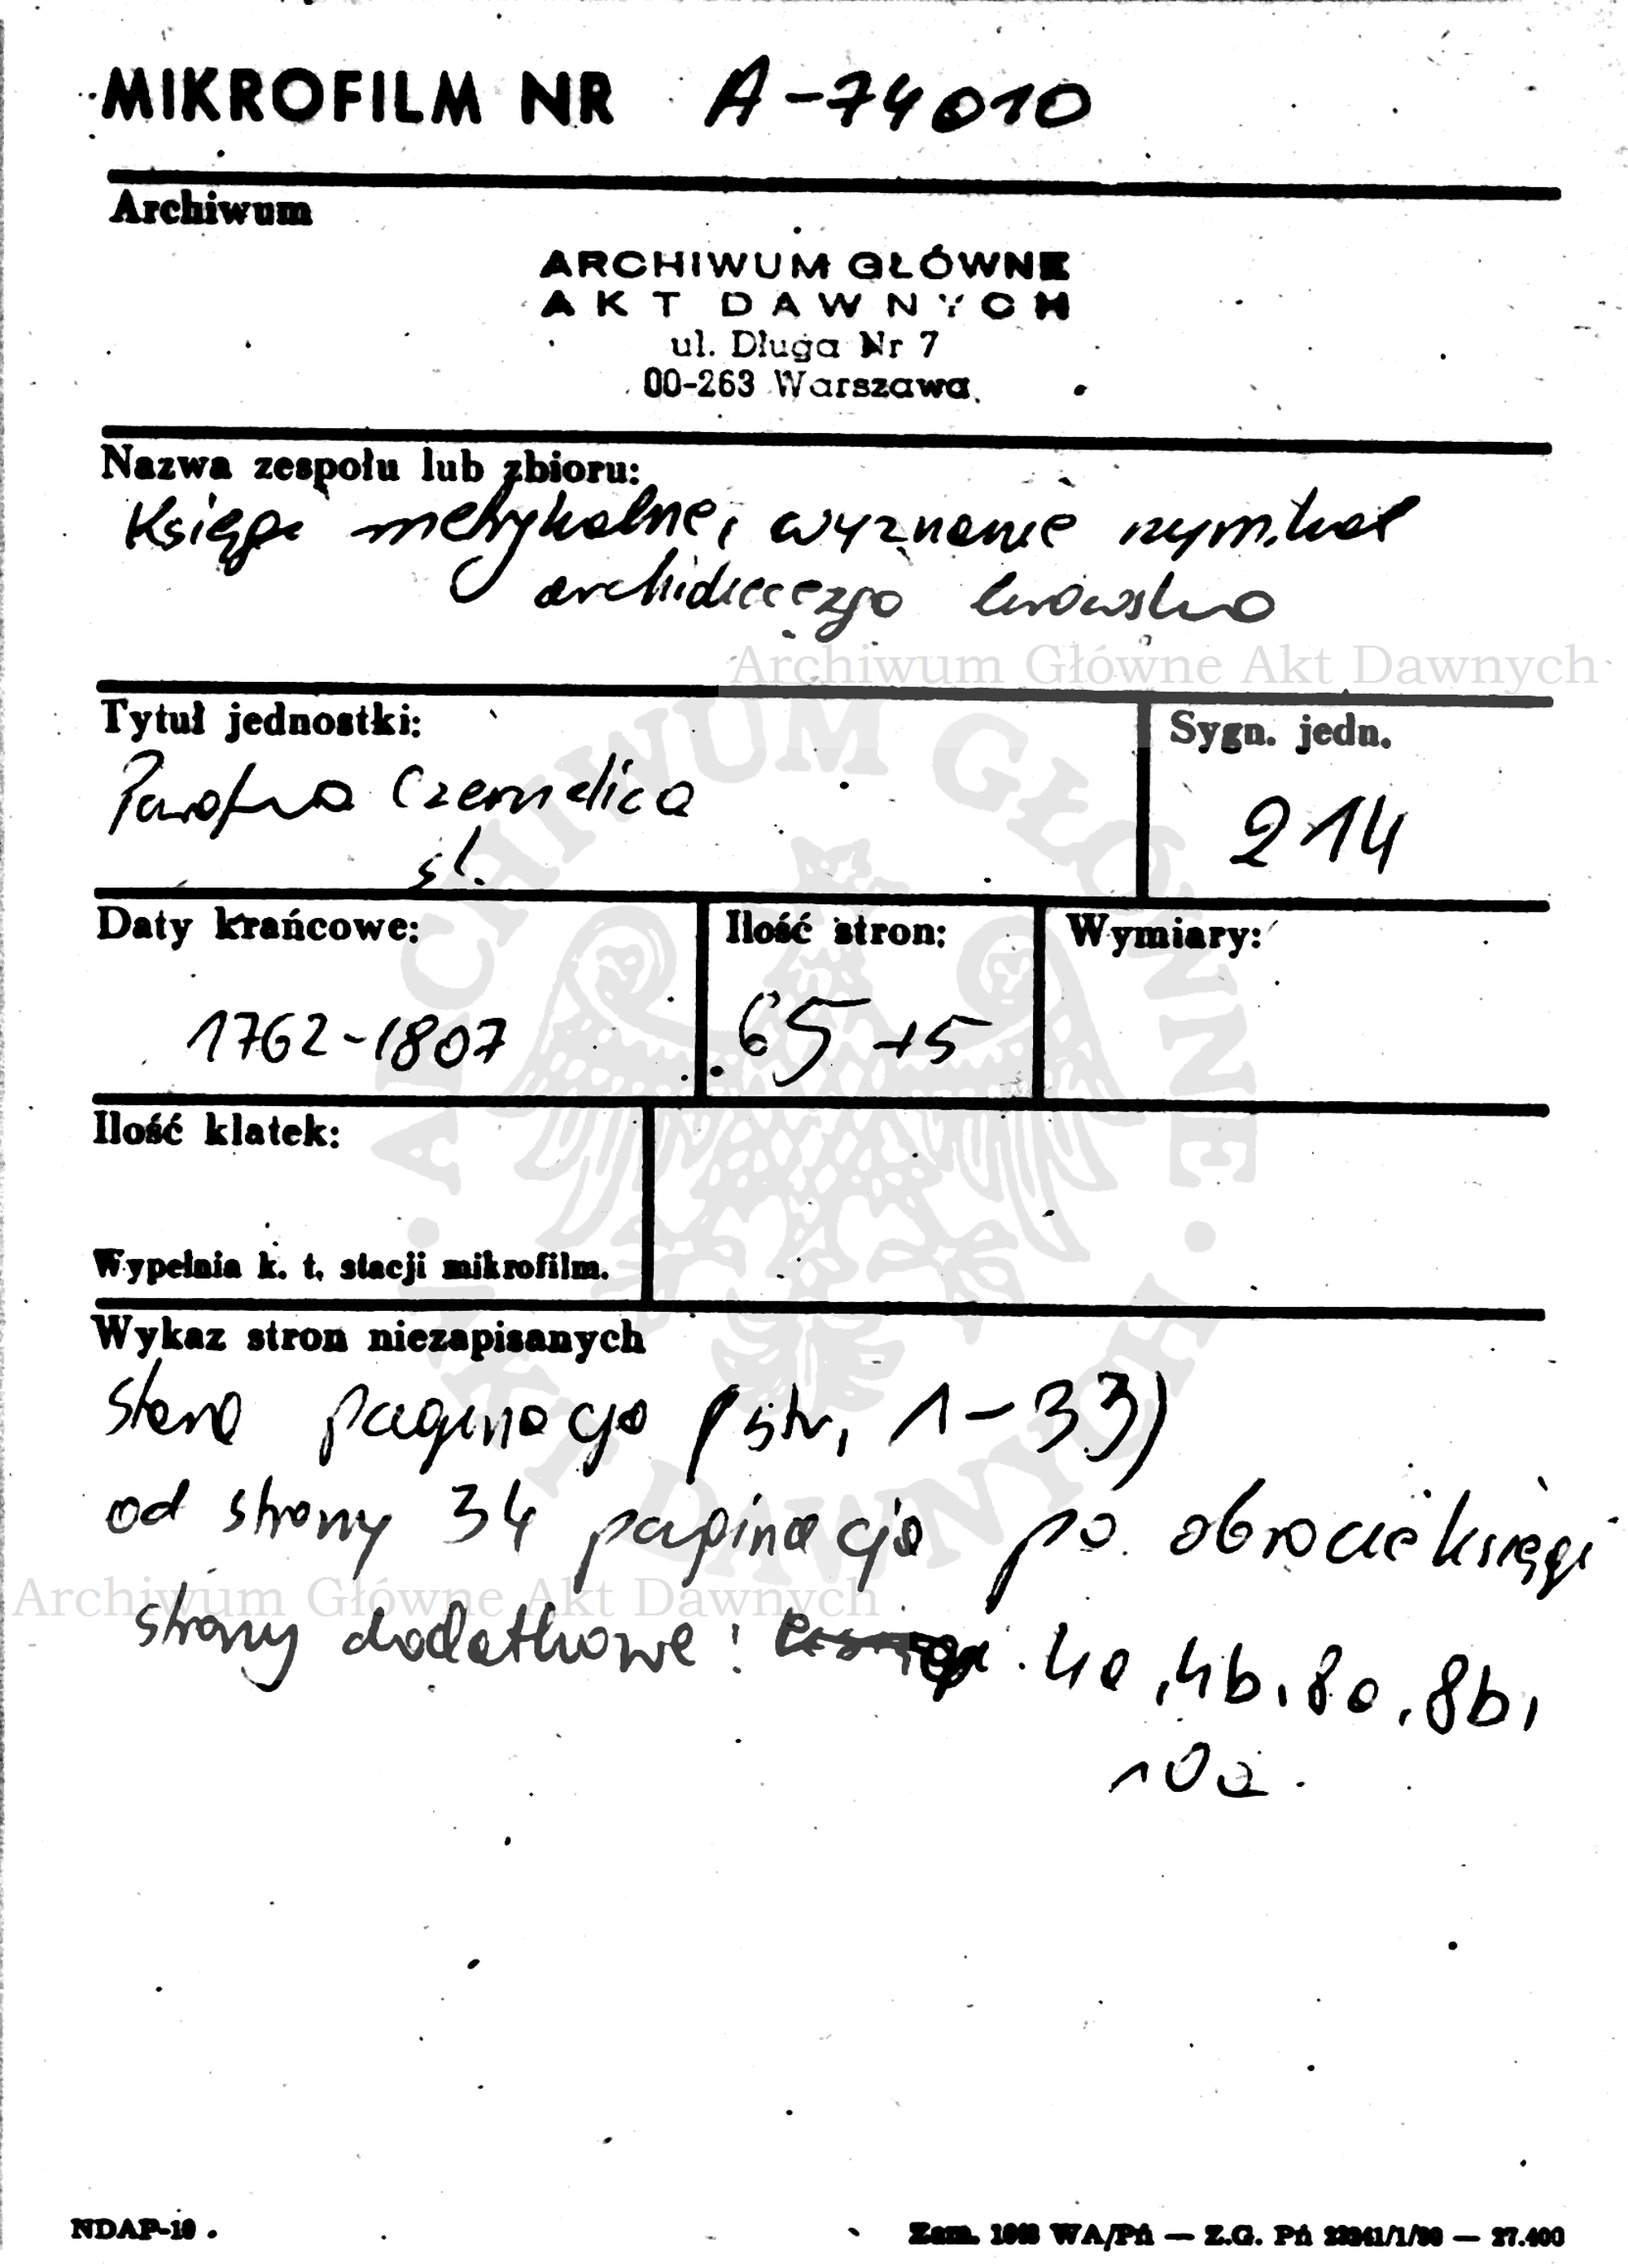 MIKROFILM NR A-74010
Archiwum
ARCHIWUM GŁÓWNE
AKT DAWNYCH
ul. Długa Nr 7
00-263 Warszawa
Nazwa zespołu lub zbioru:
Księgi metrykalne, wyznanie rzym.kat
archidiecezja lwowska
Archiwum Główne Akt Dawnych
Tytuł jednostki:
Sygn. jedn.
Parafia Czernelica
214
Daty krańcowe:
Ilość stron:
Wymiary:
1762-1807
65 +5
Ilość klatek:
Wypełnia k. t. stacji mikrofilm.
Wykaz stron niezapisanych
stara paginacja (str, 1-33)
od strony 34 paginacja po obrocie księgi
Archiwum Główne Akt Dawnych
strony dodatkowe: 4a, 4b, 8a, 8b,
10a.
NDAP-10
Zam. WA/Pń — Z.G. Pń — 27.400
ARCHIWUM GŁÓWNE AKT DAWNYCH